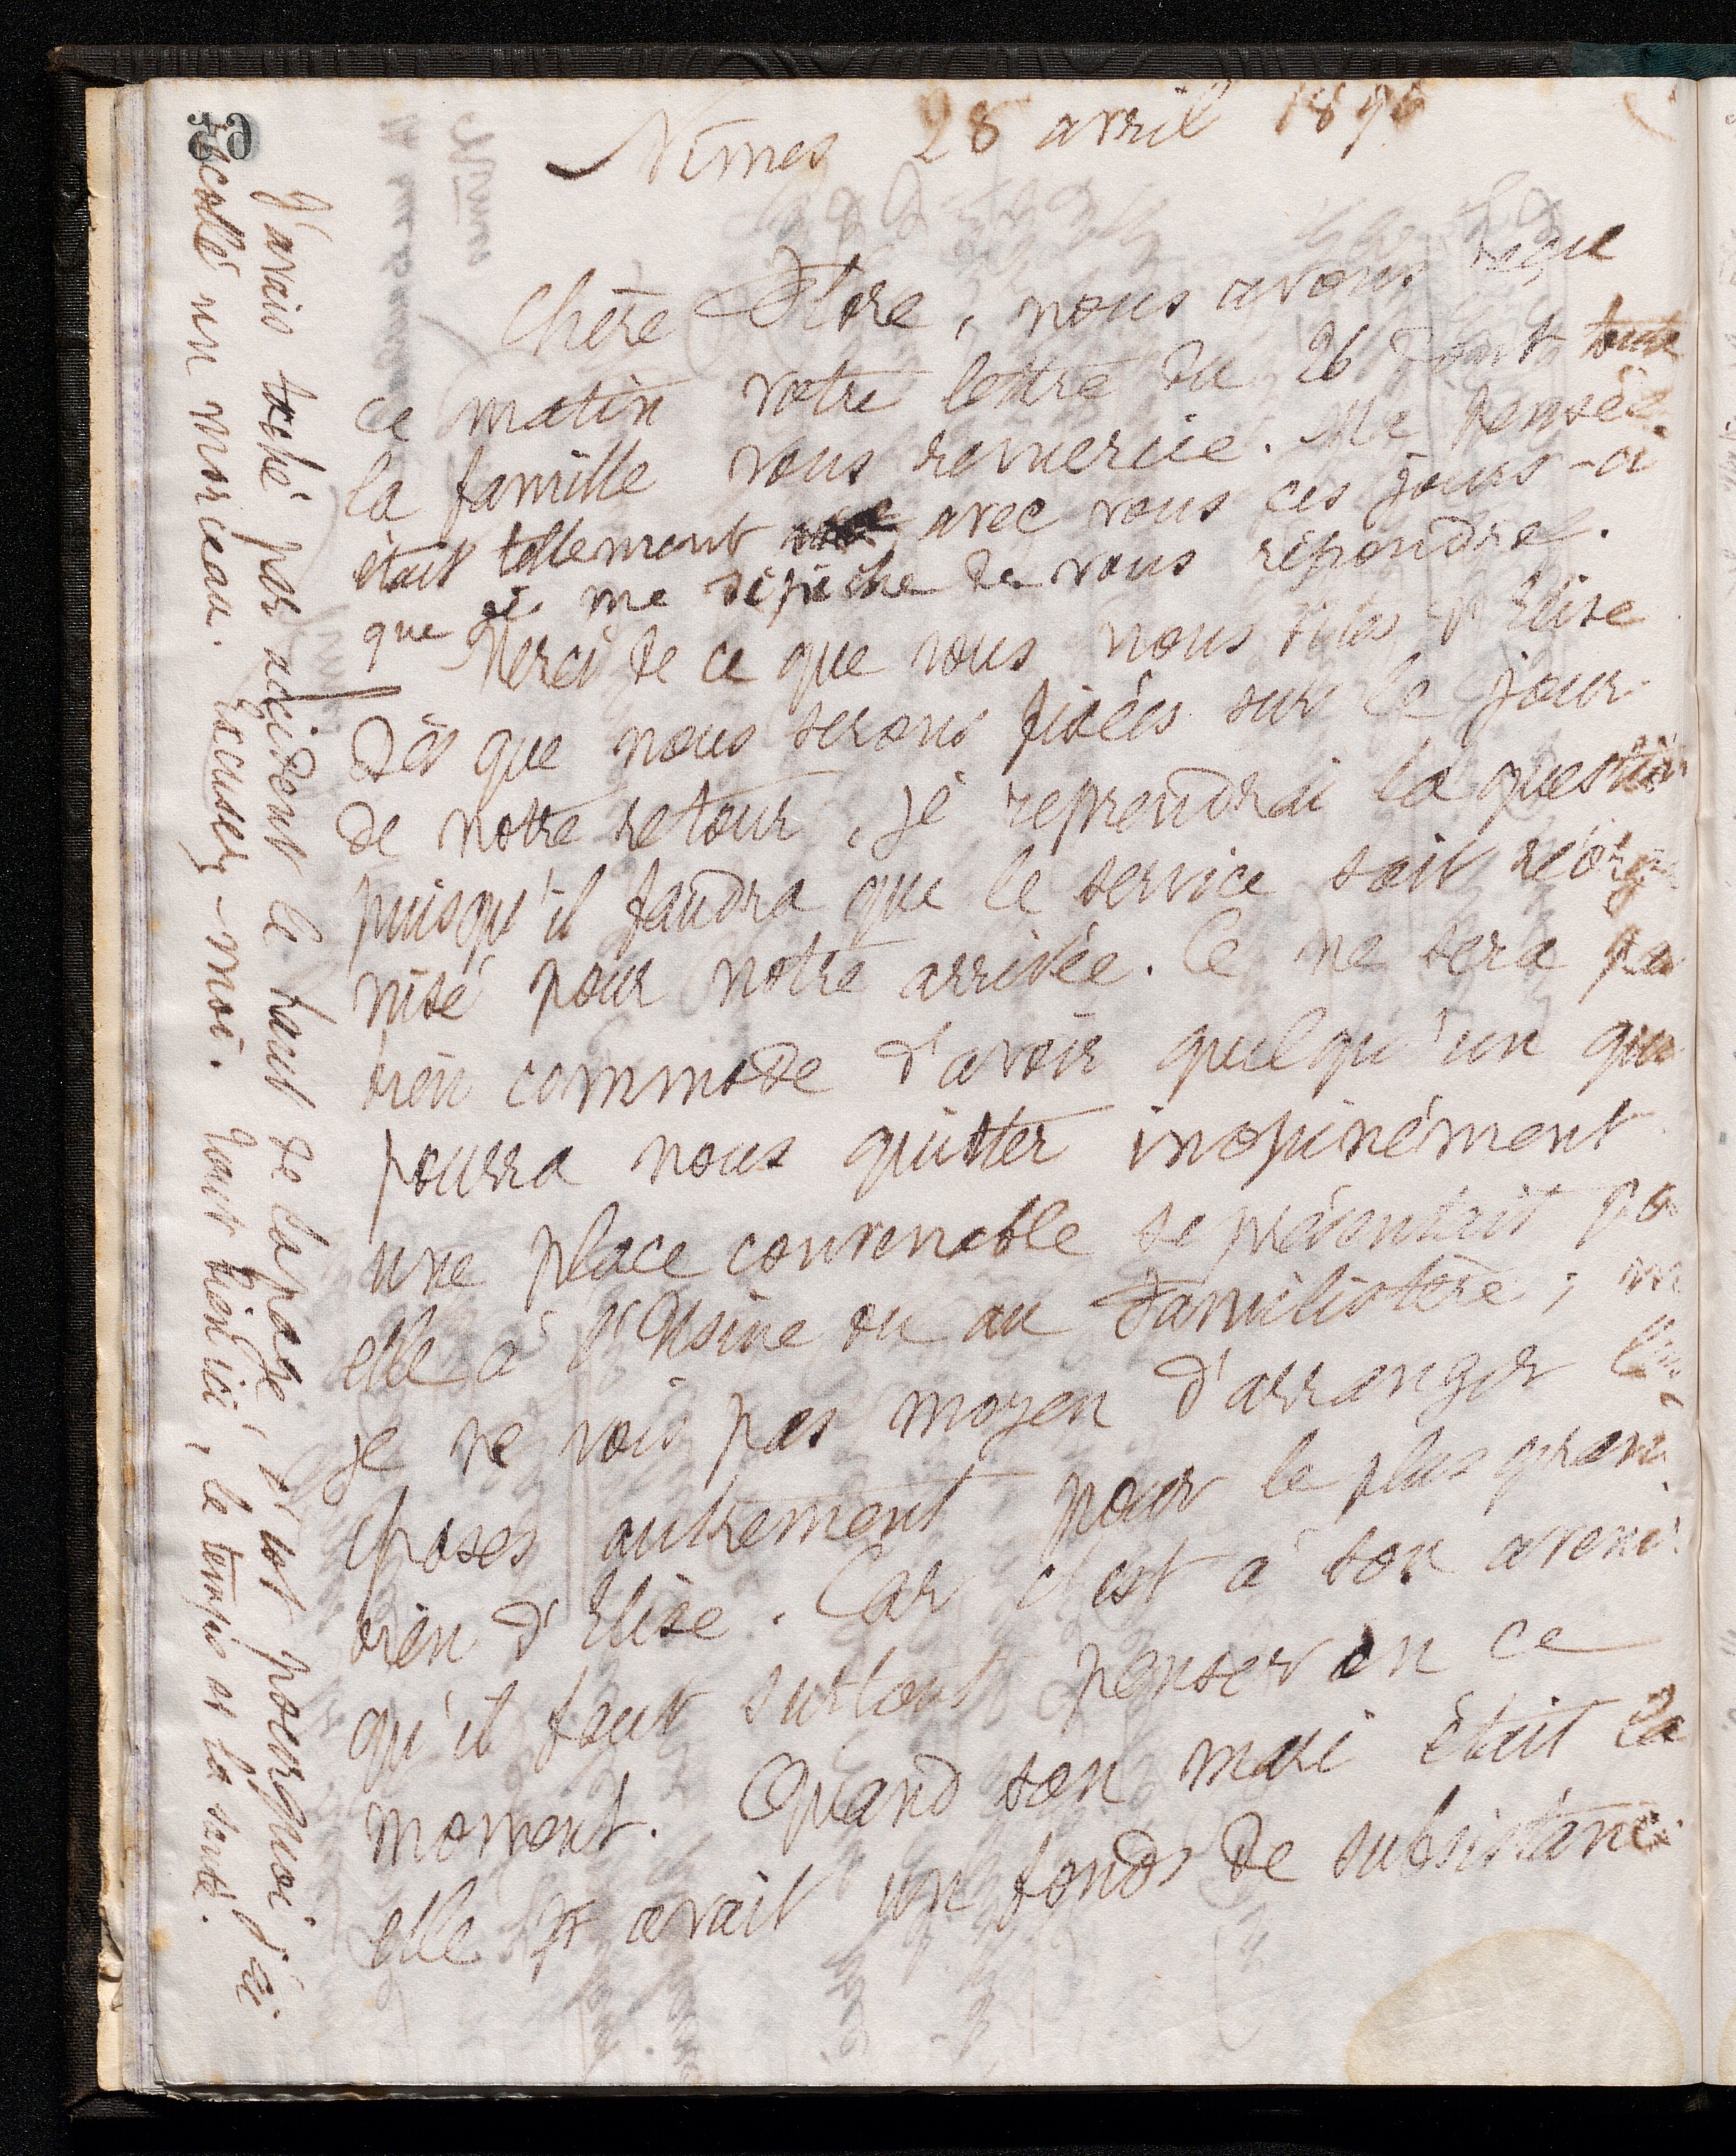 Nîmes 28 avril 1896
Chère Flore, nous avons reçu
ce matin votre lettre du 26 dont toute
la famille vous remercie. Ma pensée
était tellement avec vous ces jours-ci
que je me dépêche de vous répondre.
Merci de ce que vous nous dites d'Elise
Dès que nous serons fixées sur le jour
de notre retour, je reprendrai la question
puisqu'il faudra que le service soit réorga
nisé pour notre arrivée. Ce ne sera pas
bien commode d'avoir quelqu'un qui
pourra nous quitter inopinément
une place convenable se présentait pr
elle à l'Usine ou au Familistère ;
je ne vois pas moyen d'arranger les
choses autrement pour le plus grand
bien d'Elise. Car c'est à son avenir
qu'il faut surtout penser en ce
moment. Quand son mari était là
elle avait un fonds de subsistance
J'avais taché par accident le haut de la page, c'est pourquoi j'ai
recollé un morceau. Excusez-moi. Tout bien ici, le temps et la santé.
65